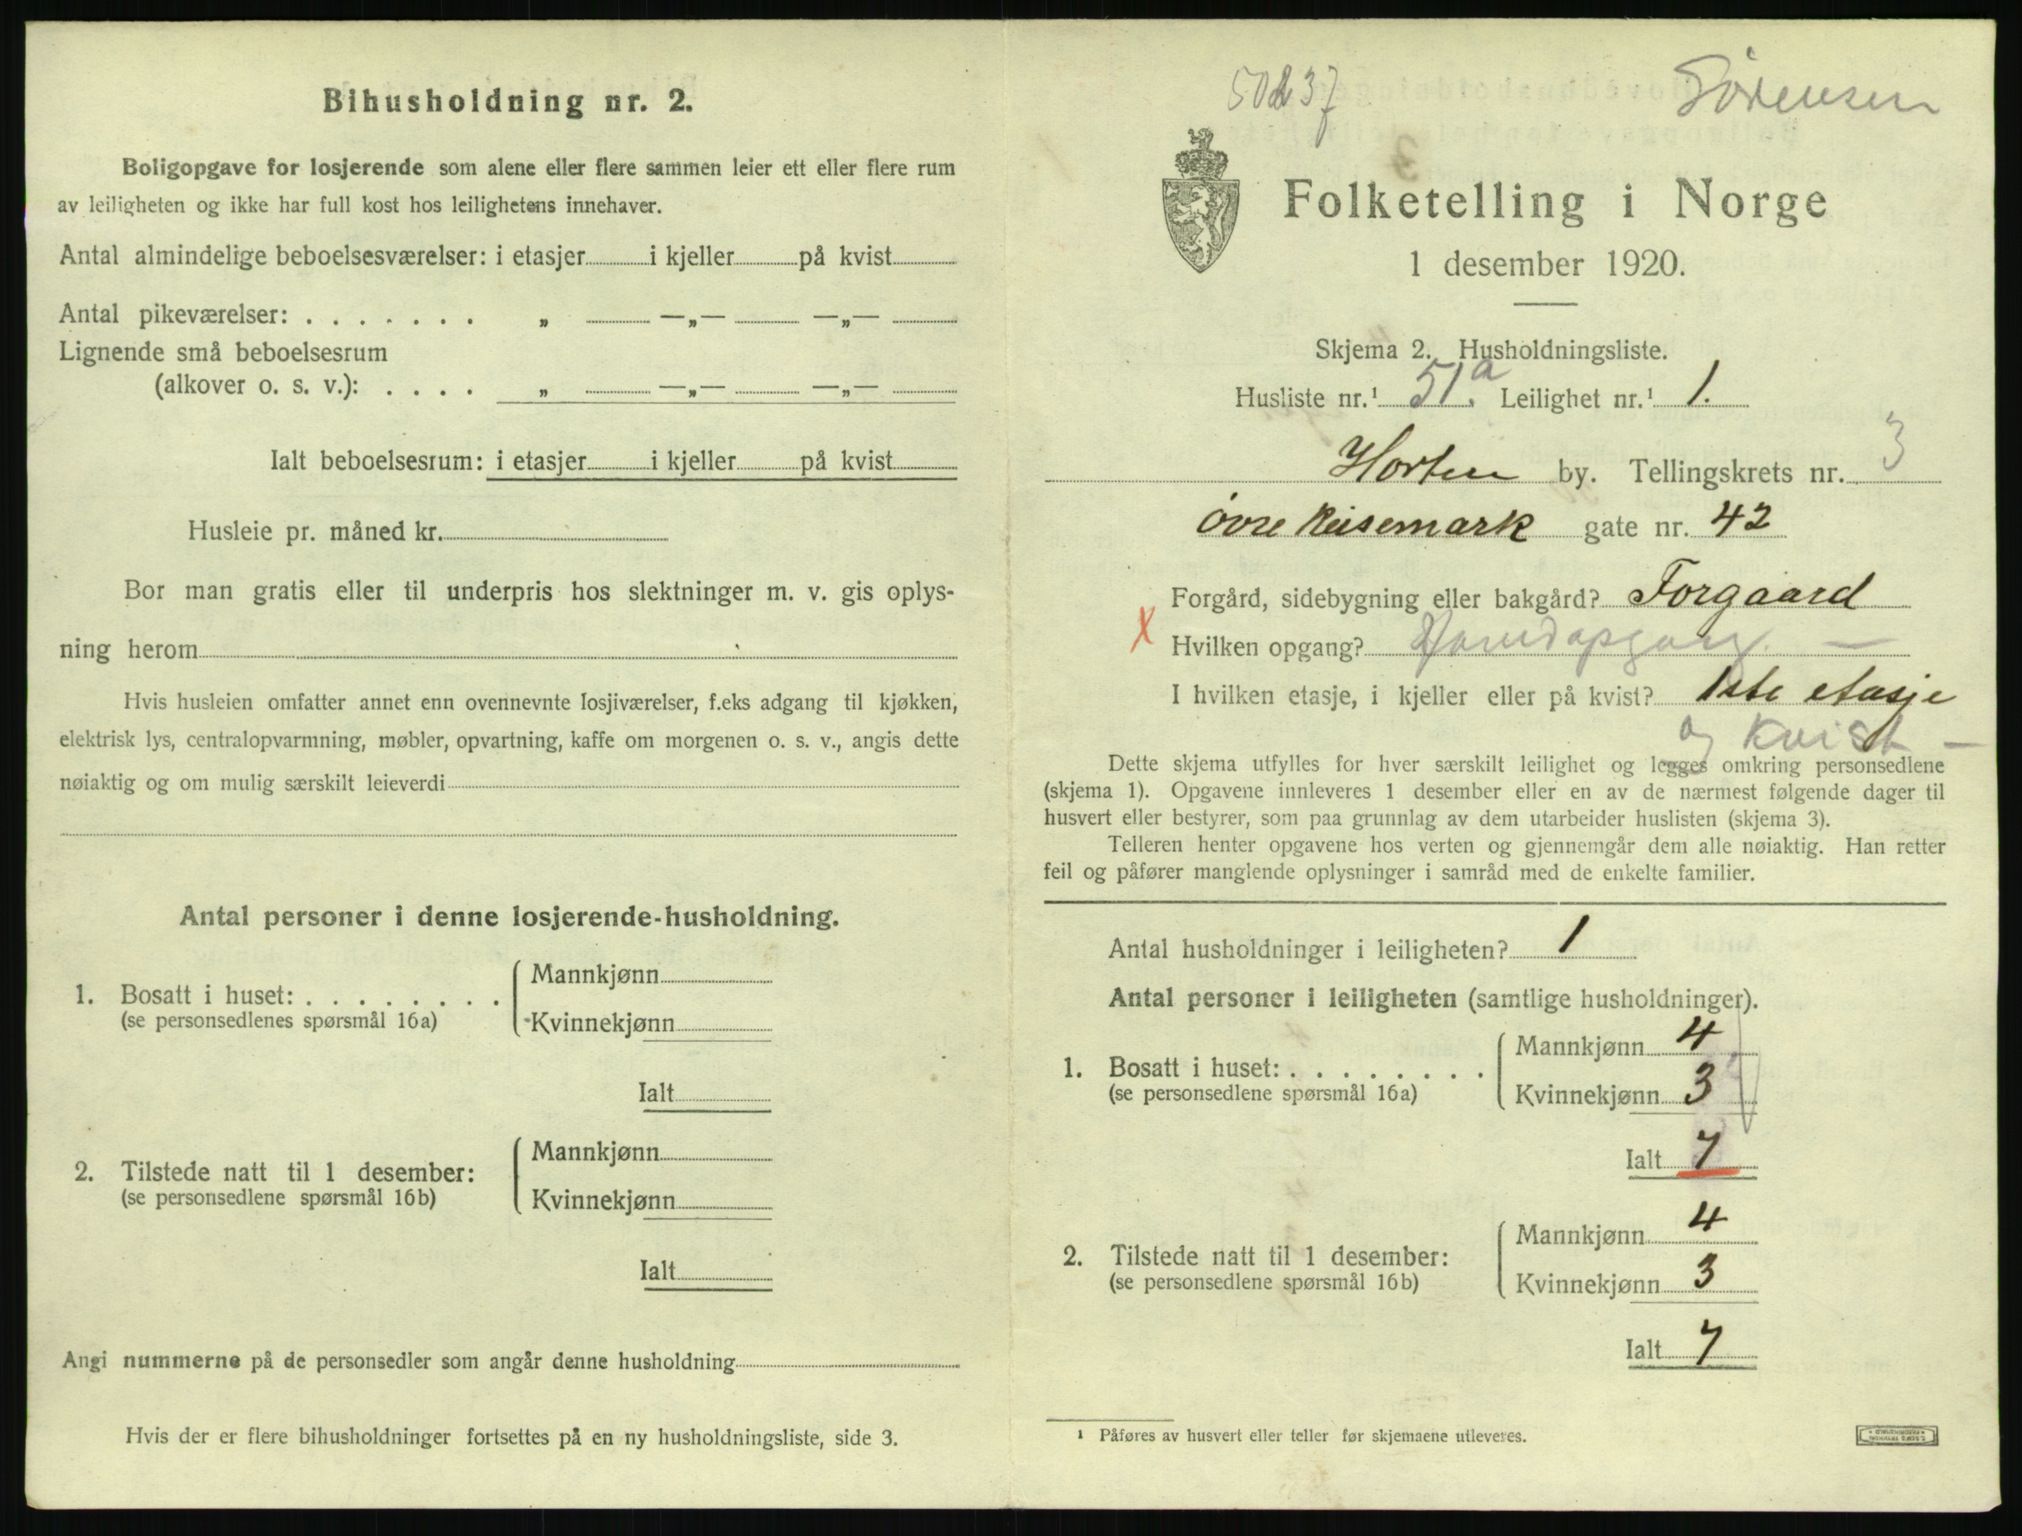 Bihusholdning nr. 2.
Boligopgave for losjerende som alene eller flere sammen leier ett eller flere rum
av leiligheten og ikke har full kost hos leilighetens innehaver.
Antal almindelige beboelsesværelser: i etasjer i kjeller på kvist
Antal pikeværelser: . . . . . . . „ —„— —„—
Lignende små beboelsesrum
(alkover o. s. v.): . . . . „ —„— —„—
Ialt beboelsesrum: i etasjer i kjeller på kvist
Husleie pr. måned kr.
Bor man gratis eller til underpris hos slektninger m. v. gis oplys-
ning herom
Hvis husleien omfatter annet enn ovennevnte losjiværelser, f.eks adgang til kjøkken,
elektrisk lys, centralopvarmning, møbler, opvartning, kaffe om morgenen o. s. v., angis dette
nøiaktig og om mulig særskilt leieverdi
Antal personer i denne losjerende-husholdning.
1. Bosatt i huset: . . . . . . . .
(se personsedlenes spørsmål 16a)
Mannkjønn
Kvinnekjønn
Ialt
2. Tilstede natt til 1 desember:
(se personsedlene spørsmål 16b)
Mannkjønn
Kvinnekjønn
Ialt
Angi nummerne på de personsedler som angår denne husholdning
Hvis der er flere bihusholdninger fortsettes på en ny husholdningsliste, side 3.
Sørensen
Folketelling i Norge
1 desember 1920.
Skjema 2. Husholdningsliste.
Husliste nr.¹ 51a. Leilighet nr.¹ 1.
Horten by. Tellingskrets nr. 3
Øvre Keisemark gate nr. 42
Forgård, sidebygning eller bakgård? Forgaard
x Hvilken opgang? Hovedopgang. —
I hvilken etasje, i kjeller eller på kvist? 1ste etasje
og kvist —
Dette skjema utfylles for hver særskilt leilighet og legges omkring personsedlene
(skjema 1). Opgavene innleveres 1 desember eller en av de nærmest følgende dager til
husvert eller bestyrer, som paa grunnlag av dem utarbeider huslisten (skjema 3).
Telleren henter opgavene hos verten og gjennemgår dem alle nøiaktig. Han retter
feil og påfører manglende oplysninger i samråd med de enkelte familier.
Antal husholdninger i leiligheten? 1
Antal personer i leiligheten (samtlige husholdninger).
1. Bosatt i huset: . . . . . . . .
(se personsedlene spørsmål 16a)
Mannkjønn 4
Kvinnekjønn 3
Ialt 7
2. Tilstede natt til 1 desember:
(se personsedlene spørsmål 16b)
Mannkjønn 4
Kvinnekjønn 3
Ialt 7
¹ Påføres av husvert eller teller før skjemaene utleveres.